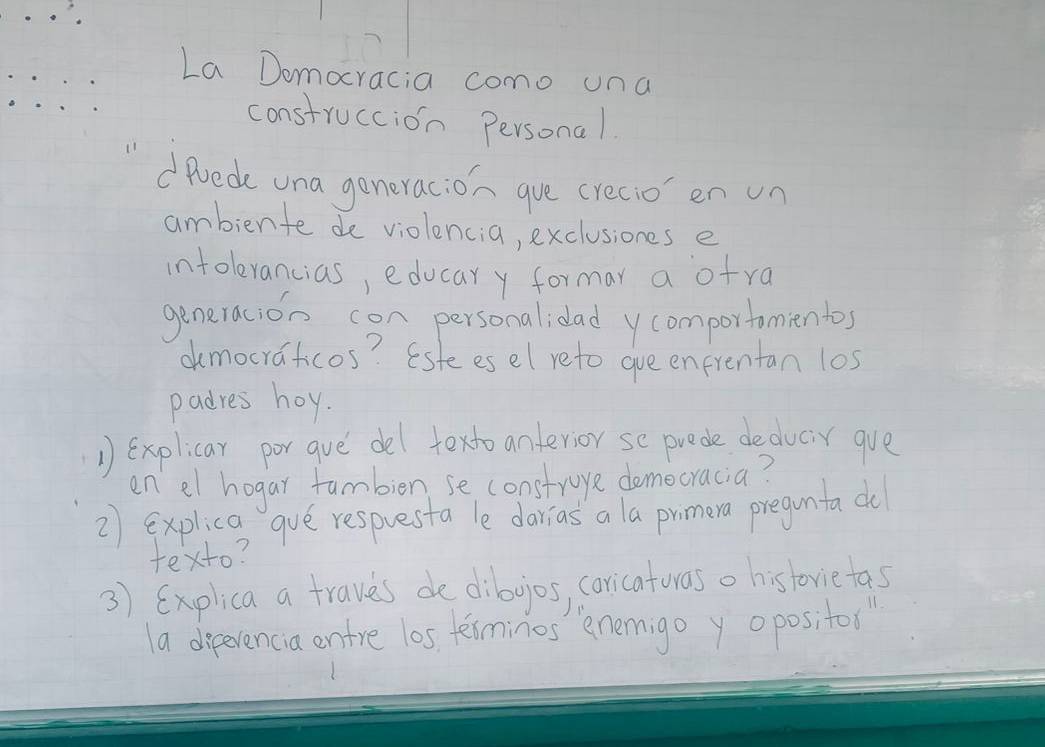 La Democracia como una
construcción Personal.
"¿Puede una generación que creció en un
ambiente de violencia, exclusiones e
intolerancias, educar y formar a otra
generación con personalidad y comportamientos
democráticos? Este es el reto que enfrentan los
padres hoy.
1) Explicar por qué del texto anterior se puede deducir que
en el hogar tambien se construye democracia?
2) Explica qué respuesta le darías a la primera pregunta del
texto?
3) Explica a través de dibujos, caricaturas o historietas
la diferencia entre los términos "enemigo y opositor".